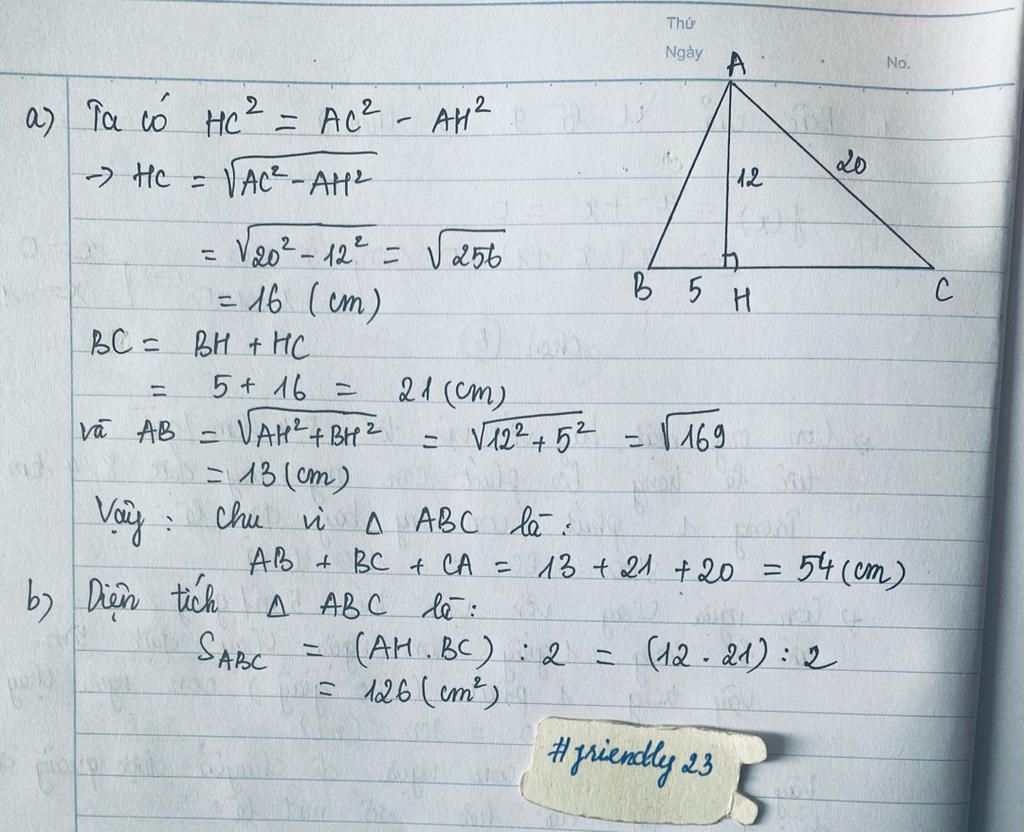 Thứ
Ngày
No.
a) Ta có HC² = AC² - AH²
→ HC = √(AC² - AH²)
= √(20² - 12²) = √256
= 16 (cm)
A
12
20
B 5 H C
BC = BH + HC
= 5 + 16 = 21 (cm)
và AB = √(AH² + BH²) = √(12² + 5²) = √169
= 13 (cm)
Vậy : chu vi Δ ABC là :
AB + BC + CA = 13 + 21 + 20 = 54 (cm)
b) Diện tích Δ ABC là :
S_ABC = (AH . BC) : 2 = (12 . 21) : 2
= 126 (cm²)
#friendly 23